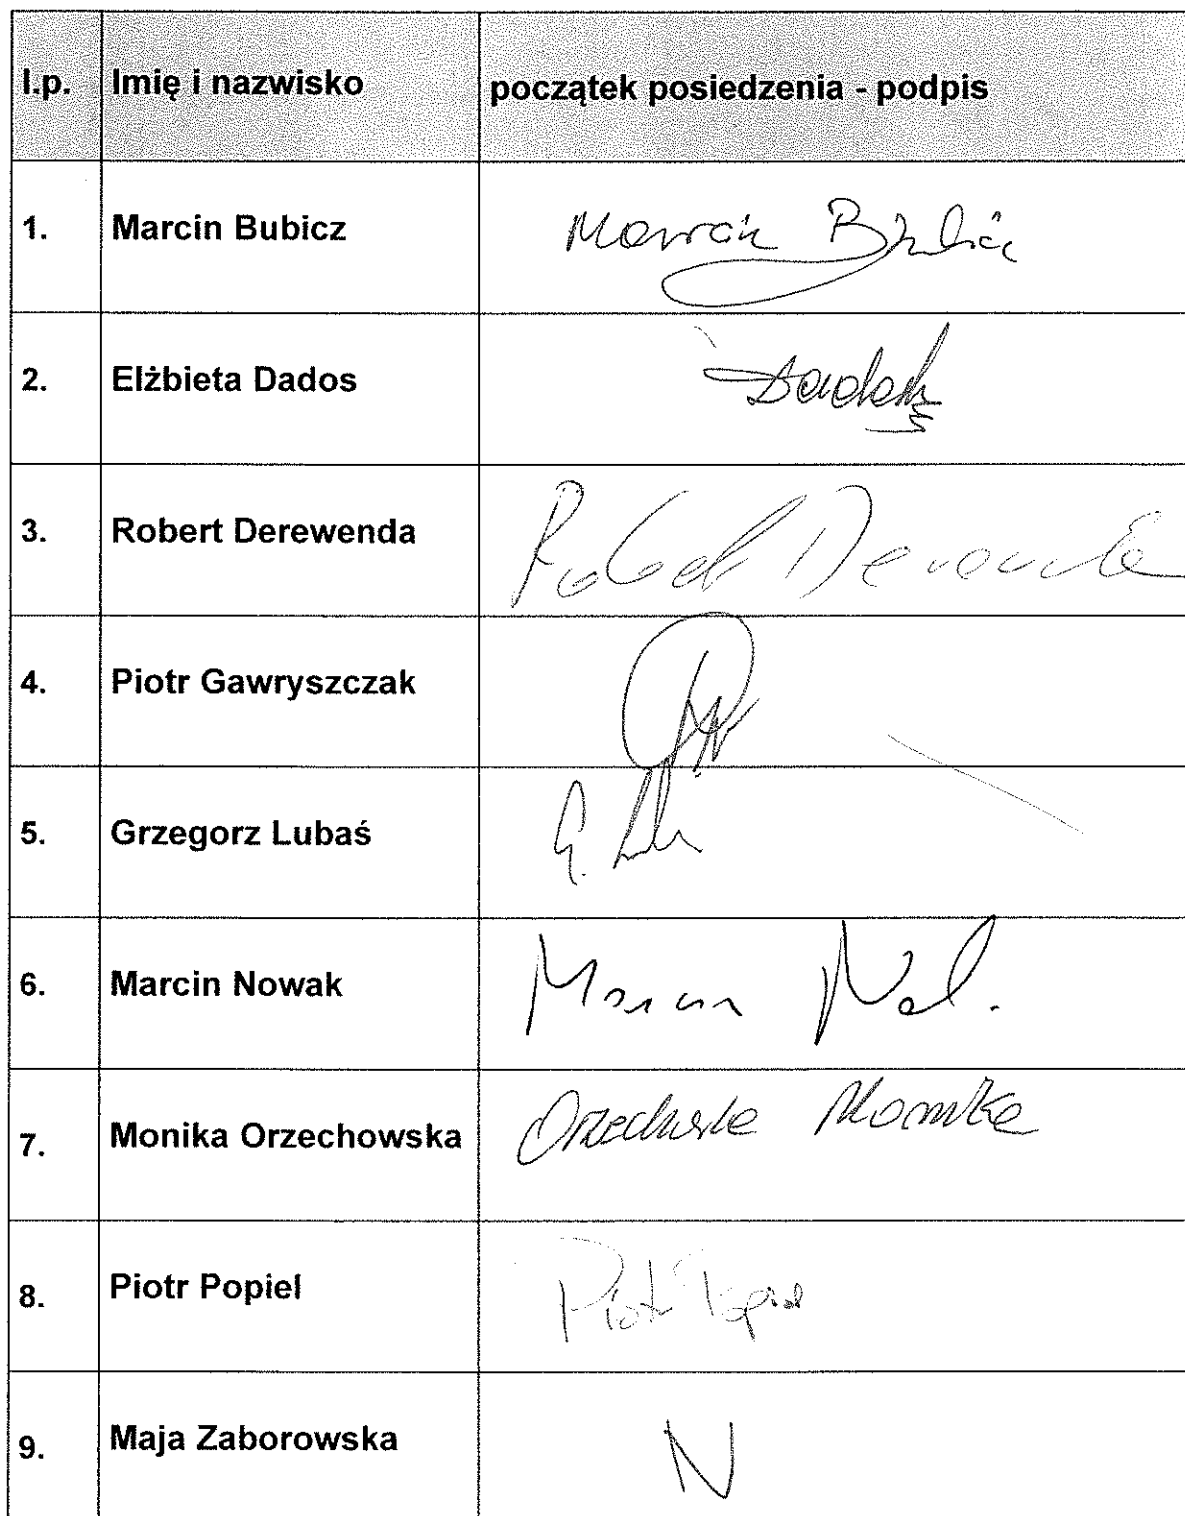 l.p. Imię i nazwisko początek posiedzenia - podpis
1. Marcin Bubicz Marcin Bubicz
2. Elżbieta Dados
3. Robert Derewenda Robert Derewenda
4. Piotr Gawryszczak
5. Grzegorz Lubaś
6. Marcin Nowak Marcin
7. Monika Orzechowska Orzechowska Monika
8. Piotr Popiel Piotr Popiel
9. Maja Zaborowska N